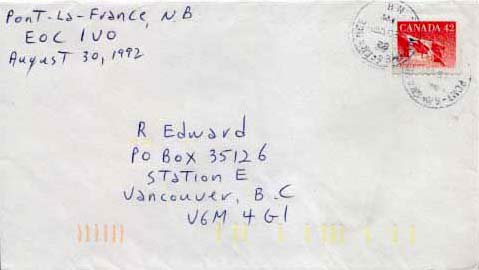 Pont-La-France, NB
EOC 1VO
August 30, 1992
CANADA 42
R Edward
PO Box 35126
Station E
Vancouver, B.C
V6M 4G1